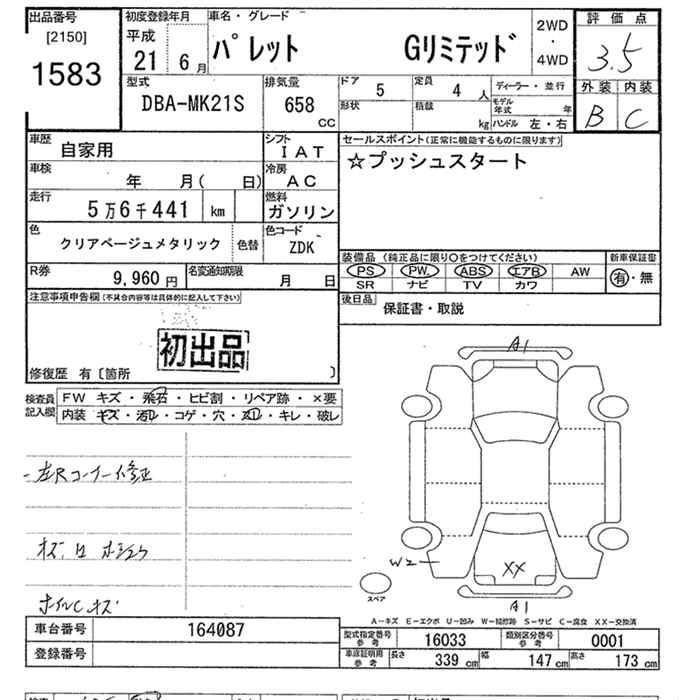 出品番号 [2150] 1583
初度登録年月 平成 21 6 月
車名・グレード パレット Gリミテッド
2WD ・ 4WD
評価点 3.5
型式 DBA-MK21S
排気量 658 cc
ドア 5 定員 4 人
形状 積載 kg
ディーラー・並行
モデル年式 年
ハンドル 左・右
外装 内装
B C
車歴 自家用
シフト IAT
車検 年 月( 日)
冷房 AC
走行 5万6千441 km
燃料 ガソリン
色 クリアベージュメタリック 色替
色コード ZDK
R券 9,960 円 名変通知期限 月 日
セールスポイント(正常に機能するものに限ります)
☆プッシュスタート
装備品(純正品に限り○をつけてください) 新車保証書
PS PW ABS エアB AW 有・無
SR ナビ TV カワ
後日品 保証書・取説
注意事項申告欄(不具合内容等は具体的に記入して下さい)
初出品
修復歴 有〔箇所 〕
検査員記入欄 FW キズ・飛石・ヒビ割・リペア跡・×要
内装・キズ・汚レ・コゲ・穴・スレ・キレ・破レ
左Rコーナー修正
ホイルCキズ
A1
W2
XX
スペア
A1
A-キズ E-エクボ U-凹み W-補修跡 S-サビ C-腐食 XX-交換済
車台番号 164087
登録番号
型式指定番号参考 16033 類別区分番号参考 0001
車庫証明用参考 長さ 339 cm 幅 147 cm 高さ 173 cm